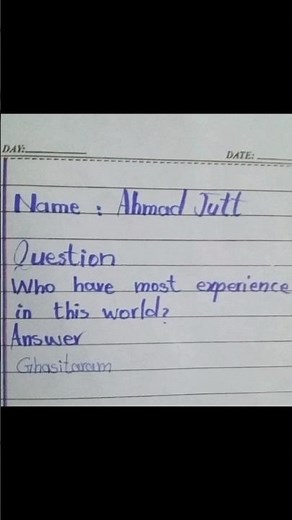 DAY:
DATE:
Name : Ahmad Jutt
Question
Who have most experience
in this world?
Answer
Ghasitaram